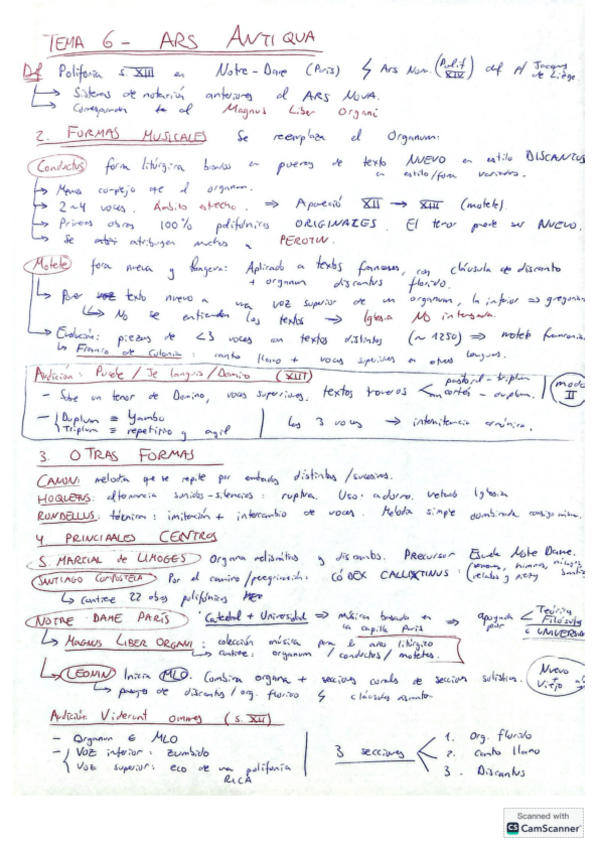 TEMA 6 - ARS ANTIQUA
Df Polifonía s. XIII en Notre-Dame (París) ↯ Ars Nov. (Polif XIV) def p/ Jacques de Liège.
↳ Sistemas de notación anteriores al ARS NOVA.
↳ al Magnus Liber Organi
2. FORMAS MUSICALES Se reemplaza el Organum:
Conductus forma litúrgica basada en de texto NUEVO en estilo DISCANTUS
en estilo/forma variados.
→ Menos complejo que el organum.
→ 2~4 voces. Ámbito estrecho. ⇒ Apareció XII → XIII (motete).
→ Primeras obras 100% polifónicas ORIGINALES. El tenor puede ser NUEVO.
→ Se atribuyen muchos a PEROTIN.
Motete forma nueva y : Aplicado a textos franceses, con cláusula de discanto
+ organum discantus florido.
↳ Poner texto nuevo a una voz superior de un organum, la inferior ⇒ gregoriano
↳ No se entienden los textos → Iglesia NO
↳ Evolución: piezas de <3 voces con textos distintos (~ 1250) ⇒ motete franconiano
↳ Franco de Colonia: canto llano + voces superiores en otras lenguas.
Audición: Pucele / Je languis / Domino (XIII)
- Sobre un tenor de Domino, voces superiores. textos < pastoril - triplum
cortés - duplum.
modo II
- Duplum ≡ Yambo
Triplum ≡ repetitivo y ágil
Las 3 voces → intermitencia armónica.
3. OTRAS FORMAS
CANON: melodía que se repite por entradas distintas / sucesivas.
HOQUETUS: alternancia sonidos-silencios: ruptura. Uso: adorno. Iglesia
RONDELLUS: técnica: imitación + intercambio de voces. Melodía simple combinada consigo misma.
4 PRINCIPALES CENTROS
S. MARCIAL de LIMOGES Organa melismáticos y discantos. Precursor Escuela Notre Dame.
SANTIAGO COMPOSTELA Por el camino/peregrinación. CÓDEX CALIXTINUS: (sermones, himnos, milagros, relatos y
↳ contiene 22 obras polifónicas
NOTRE DAME PARÍS Catedral + Universidad ⇒ música basada en la capilla París ⇒ apoyada por < Teórico Filósofos
e UNIVERSI
↳ MAGNUS LIBER ORGANI: colección música para el año litúrgico
↳ contiene: organum / conductus / motetes.
↳ LEONIN Inicia MLO. Combina organa + secciones corales de sección solística.
↳ de discantos / org. florido ↯ cláusulas
Nuevo + Viejo
Audición Viderunt omnes (s. XII)
- Organum ∈ MLO
- Voz inferior: zumbido
Voz superior: eco de una polifonía RICA
3 secciones
1. Org. florido
2. canto llano
3. Discantus
Scanned with
CS CamScanner